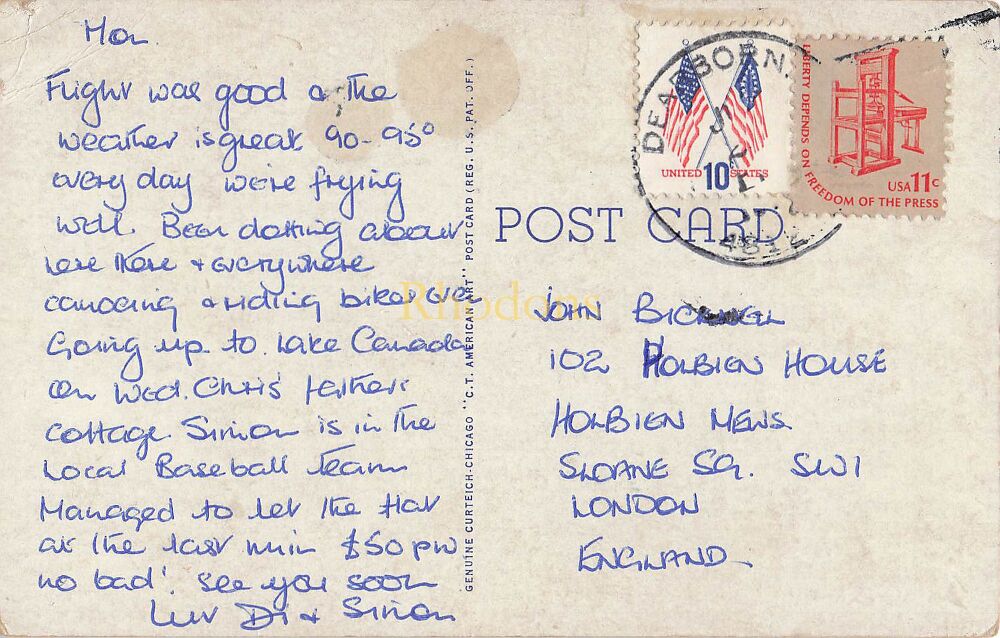 Flight was good & the
weather is great 90-95°
every day we're frying
well. Been dotting about
here there & everywhere
canoeing & riding bikes even
Going up to Lake Canada
on Wed. Chris' father's
cottage. Simon is in the
Local Baseball Team
Managed to let the flat
at the last min £50 pw
no bad! see you soon
Luv Di & Simon
GENUINE CURTEICH-CHICAGO "C.T. AMERICAN ART" POST CARD (REG. U.S. PAT. OFF.)
POST CARD
DEARBORN,
UNITED 10c STATES
LIBERTY DEPENDS ON FREEDOM OF THE PRESS
USA 11c
JOHN BICKNELL
102 HOLBIEN HOUSE
HOLBIEN MEWS.
SLOANE SQ. SW1
LONDON
ENGLAND.
Rhodons